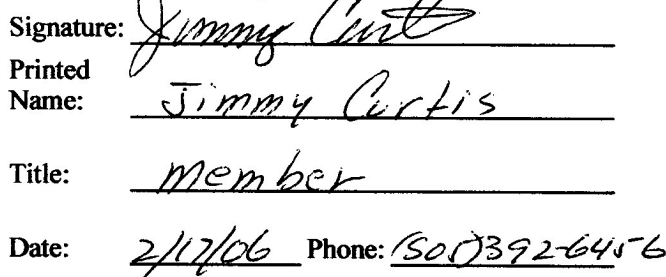 Signature: Jimmy Curtis
Printed
Name: Jimmy Curtis
Title: member
Date: 2/17/06 Phone: (505)392-6456